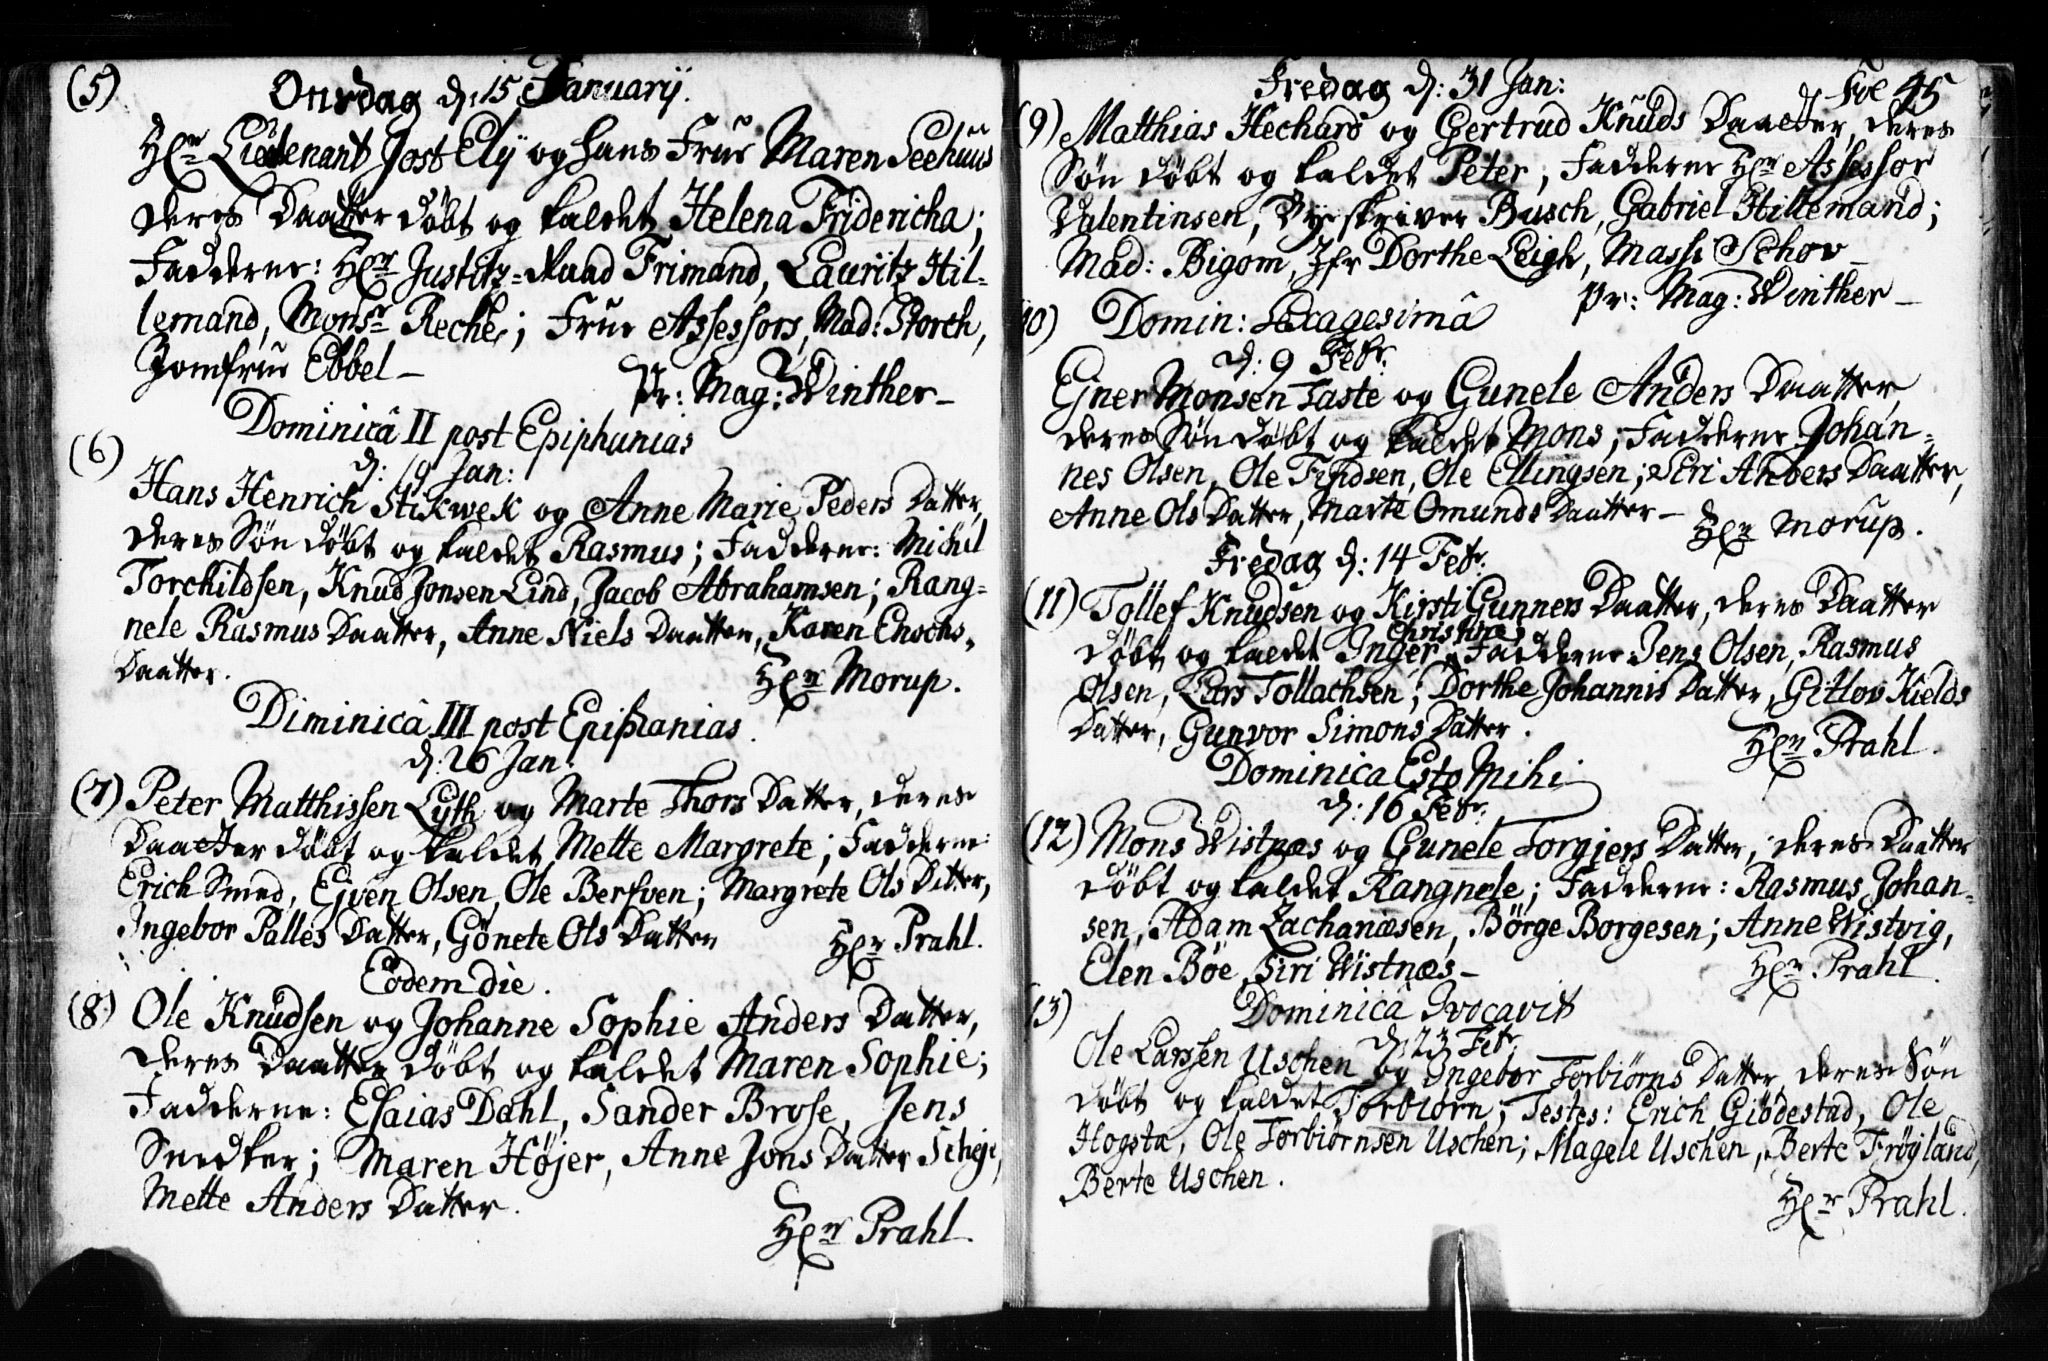 (5)
Onsdag d: 15 Januarij.
Hr Lieutenant Jost Elÿ og hans Frue Maren Seehuus
deres Daatter döbt og kaldet Helena Fridericha;
Fadderne: Hr Justitz-Raad Frimand, Lauritz Hil-
lemand, Monsr Reche; Frue Assessors, Mad: Storch,
Jomfrue Ebbel-
Pr: Mag: Winther-
Dominicâ II post Epiphanias
(6)
d: 19 Jan:
Hans Henrich Stikwek og Anne Marie Peders Datter,
deres Sön döbt og kaldet Rasmus; Fadderne: Michel
Torchildsen, Knud Jonsen Lind, Jacob Abrahamsen; Rang-
nele Rasmus Daatter, Anne Niels Daatter, Karen Enochs-
Daatter.
Hr Morup.
Diminicâ III post Epiphanias.
d: 26 Jan:
(7) Peter Matthissen Lyth og Marte Thors Datter, deres
Daatter döbt og kaldet Mette Margrete; Fadderne:
Erich Smed, Ejven Olsen, Ole Bersven; Margrete Ols Datter,
Ingebor Palles Datter, Gönete Ols Datter
Hr Prahl.
Eodem die.
(8) Ole Knudsen og Johanne Sophie Anders Datter,
deres Daatter döbt og kaldet Maren Sophie;
Fadderne: Esaias Dahl, Sander Brose, Jens
Snedker; Maren Höjer, Anne Jons Datter Scheje,
Mette Anders Datter.
Hr Prahl.
Fol 45
Fredag d: 31 Jan:
(9) Matthias Hechard og Gertrud Knuds Daatter, deres
Sön döbt og kaldet Peter; Fadderne Hr Assessor
Valentinsen, Byeskriver Busch, Gabriel Hillemand;
Mad: Bigom, Jfr Dorthe Leigh, Massi Schov-
Pr: Mag: Winther-
10) Domin: Sexagesimâ
d: 9 Febr.
Ejner Monsen Taste og Gunele Anders Daatter,
deres Sön döbt og kaldet Mons; Fadderne Johan-
nes Olsen, Ole Findsen, Ole Ellingsen; Siri Anders Daatter,
Anne Ols Datter, Marte Omunds Daatter-
Hr Morup.
Fredag d: 14 Febr:
(11) Tollef Knudsen og Kirsti Gunners Daatter, deres Daatter
Christine
döbt og kaldet Inger, Fadderne: Jens Olsen, Rasmus
Olsen, Lars Tollachsen; Dorthe Johannis Datter, Gitlov Kields
Datter, Gunvor Simons Datter.
Hr Prahl.
Dominica Esto Mihi
d: 16 Febr:
(12) Mons Wistnæs og Gunele Torgjers Datter, deres Daatter
döbt og kaldet Rangnele; Fadderne: Rasmus Johan-
sen, Adam Zachariæsen, Börge Borgesen; Anne Wistvig,
Elen Böe, Siri Wistnæs-
Hr Prahl.
13)
Dominicâ Invocavit
d: 23 Febr.
Ole Larssen Uschen og Ingebor Torbiörns Datter, deres Sön
döbt og kaldet Torbiörn; Testes: Erich Giödestad, Ole
Hogsta, Ole Torbiörnsen Uschen; Magele Uschen, Berte Fröjland,
Berte Uschen.
Hr Prahl.